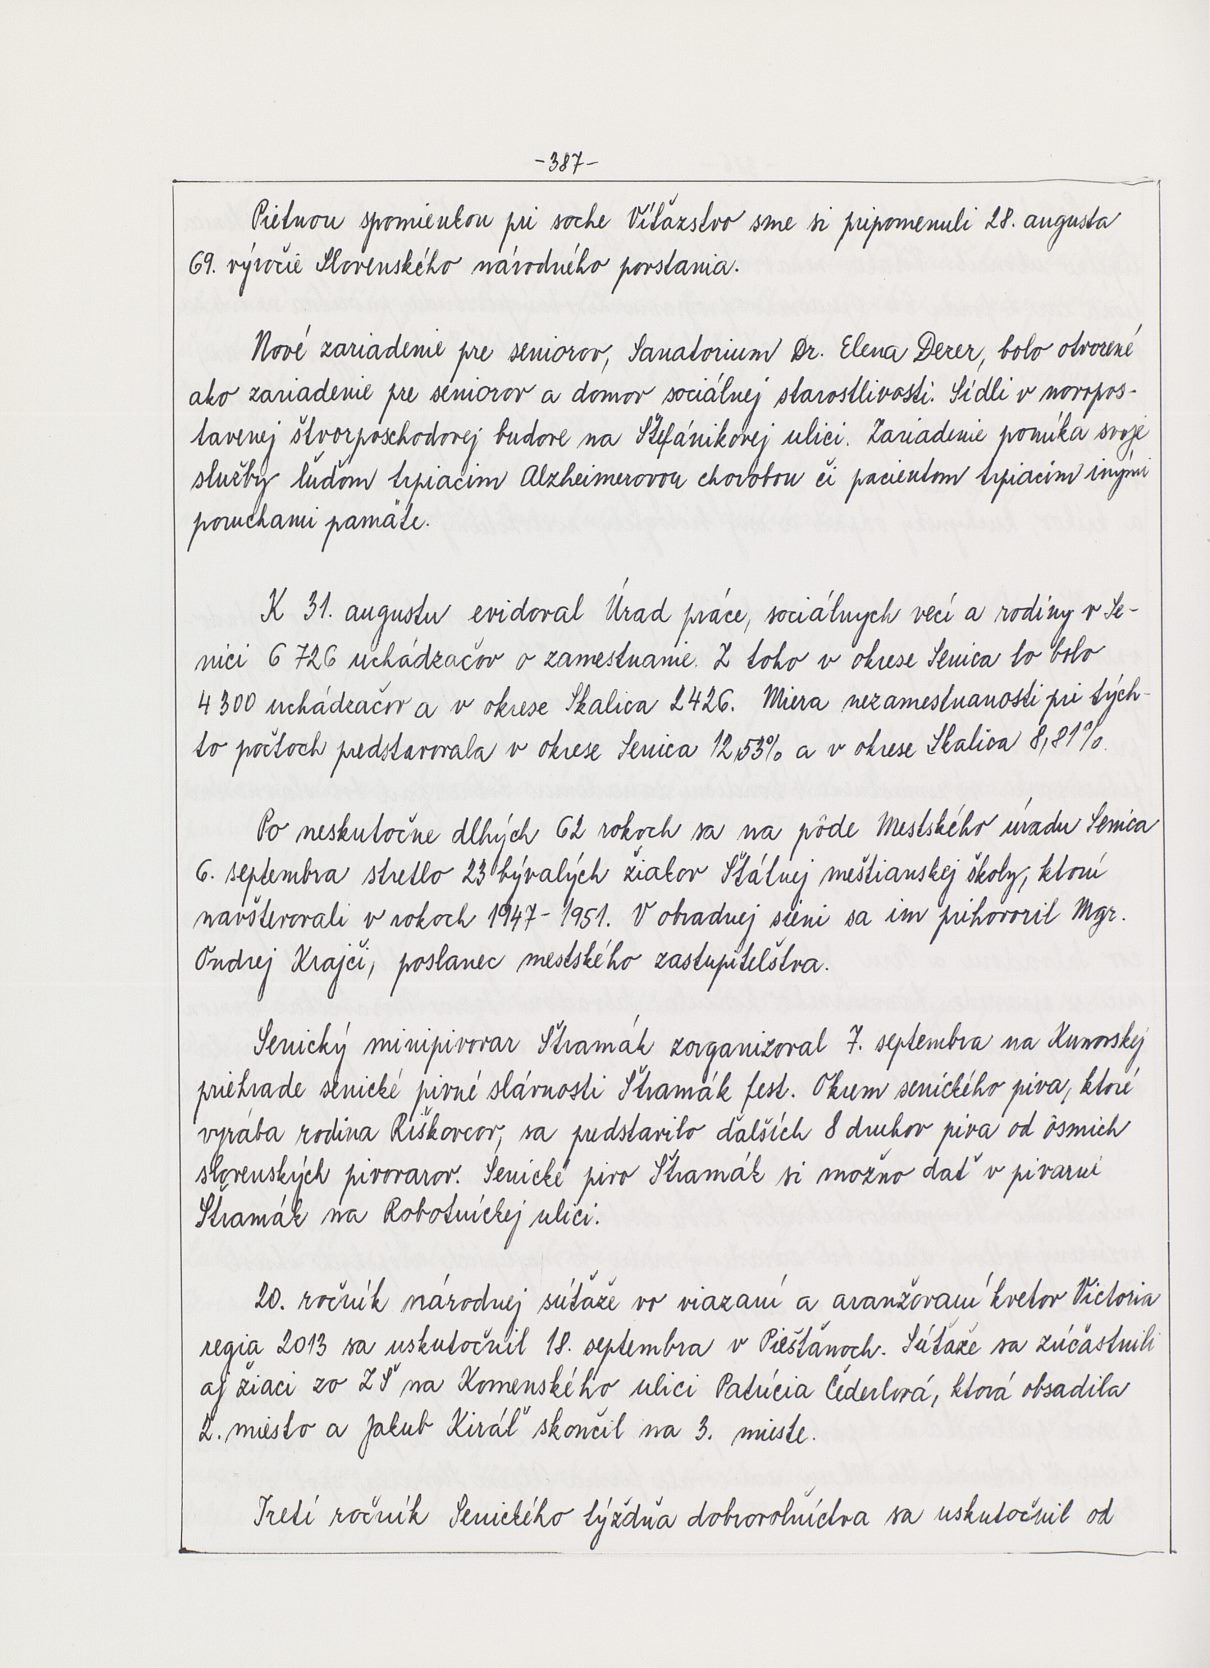 -387-
Pietnou spomienkou pri soche Víťazstvo sme si pripomenuli 28. augusta
69. výročie Slovenského národného povstania.
Nové zariadenie pre seniorov, Sanatorium Dr. Elena Derer, bolo otvorené
ako zariadenie pre seniorov a domov sociálnej starostlivosti. Sídli v novopos-
tavenej štvorposchodovej budove na Štefánikovej ulici. Zariadenie ponúka svoje
služby ľuďom trpiacim Alzheimerovou chorobou či pacientom trpiacim inými
poruchami pamäte.
K 31. augustu evidoval Úrad práce, sociálnych vecí a rodiny v Se-
nici 6 726 uchádzačov o zamestnanie. Z toho v okrese Senica to bolo
4 300 uchádzačov a v okrese Skalica 2 426. Miera nezamestnanosti pri tých-
to počtoch predstavovala v okrese Senica 12,53% a v okrese Skalica 8,81%.
Po neskutočne dlhých 62 rokoch sa na pôde Mestského úradu Senica
6. septembra stretlo 23 bývalých žiakov Štátnej meštianskej školy, ktorú
navšterovali v rokoch 1947-1951. V obradnej sieni sa im prihovoril Mgr.
Ondrej Krajči, poslanec mestského zastupiteľstva.
Senický minipivovar Šramák zorganizoval 7. septembra na Kunovskej
priehrade senické pivné slávnosti Šramák fest. Okrem senického piva, ktoré
vyrába rodina Riškovcov, sa predstavilo ďalších 8 druhov piva od ôsmich
slovenských pivovarov. Senické pivo Šramák si možno dať v pivarni
Šramák na Robotníckej ulici.
20. ročník národnej súťaže vo viazaní a aranžovaní kvetov Victoria
regia 2013 sa uskutočnil 18. septembra v Piešťanoch. Súťaže sa zúčastnili
aj žiaci zo ZŠ na Komenského ulici Patrícia Čederlová, ktorá obsadila
2. miesto a Jakub Kiráľ skončil na 3. mieste.
Tretí ročník Senického týždňa dobrovoľníctva sa uskutočnil od